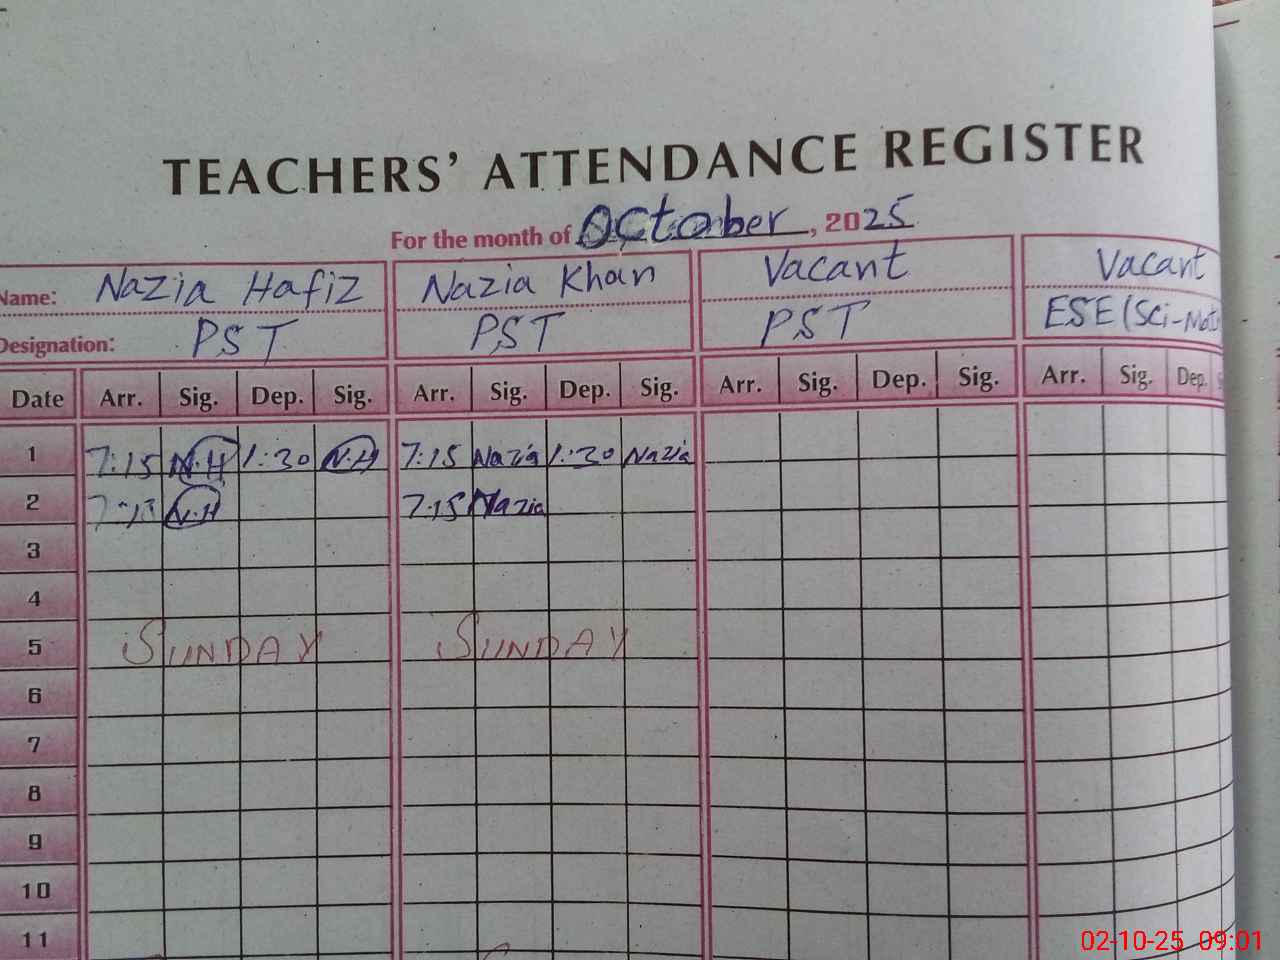 TEACHERS' ATTENDANCE REGISTER
For the month of October, 2025
Name: Nazia Hafiz Nazia Khan Vacant Vacant
Designation: PST PST PST ESE (Sci-Mat
Date Arr. Sig. Dep. Sig. Arr. Sig. Dep. Sig. Arr. Sig. Dep. Sig. Arr. Sig. Dep.
1 7:15 N.H 1:30 N.H 7:15 Nazia 1:30 Nazia
2 7:15 N.H 7:15 Nazia
3
4
5 SUNDAY SUNDAY
6
7
8
9
10
11
02-10-25 09:01